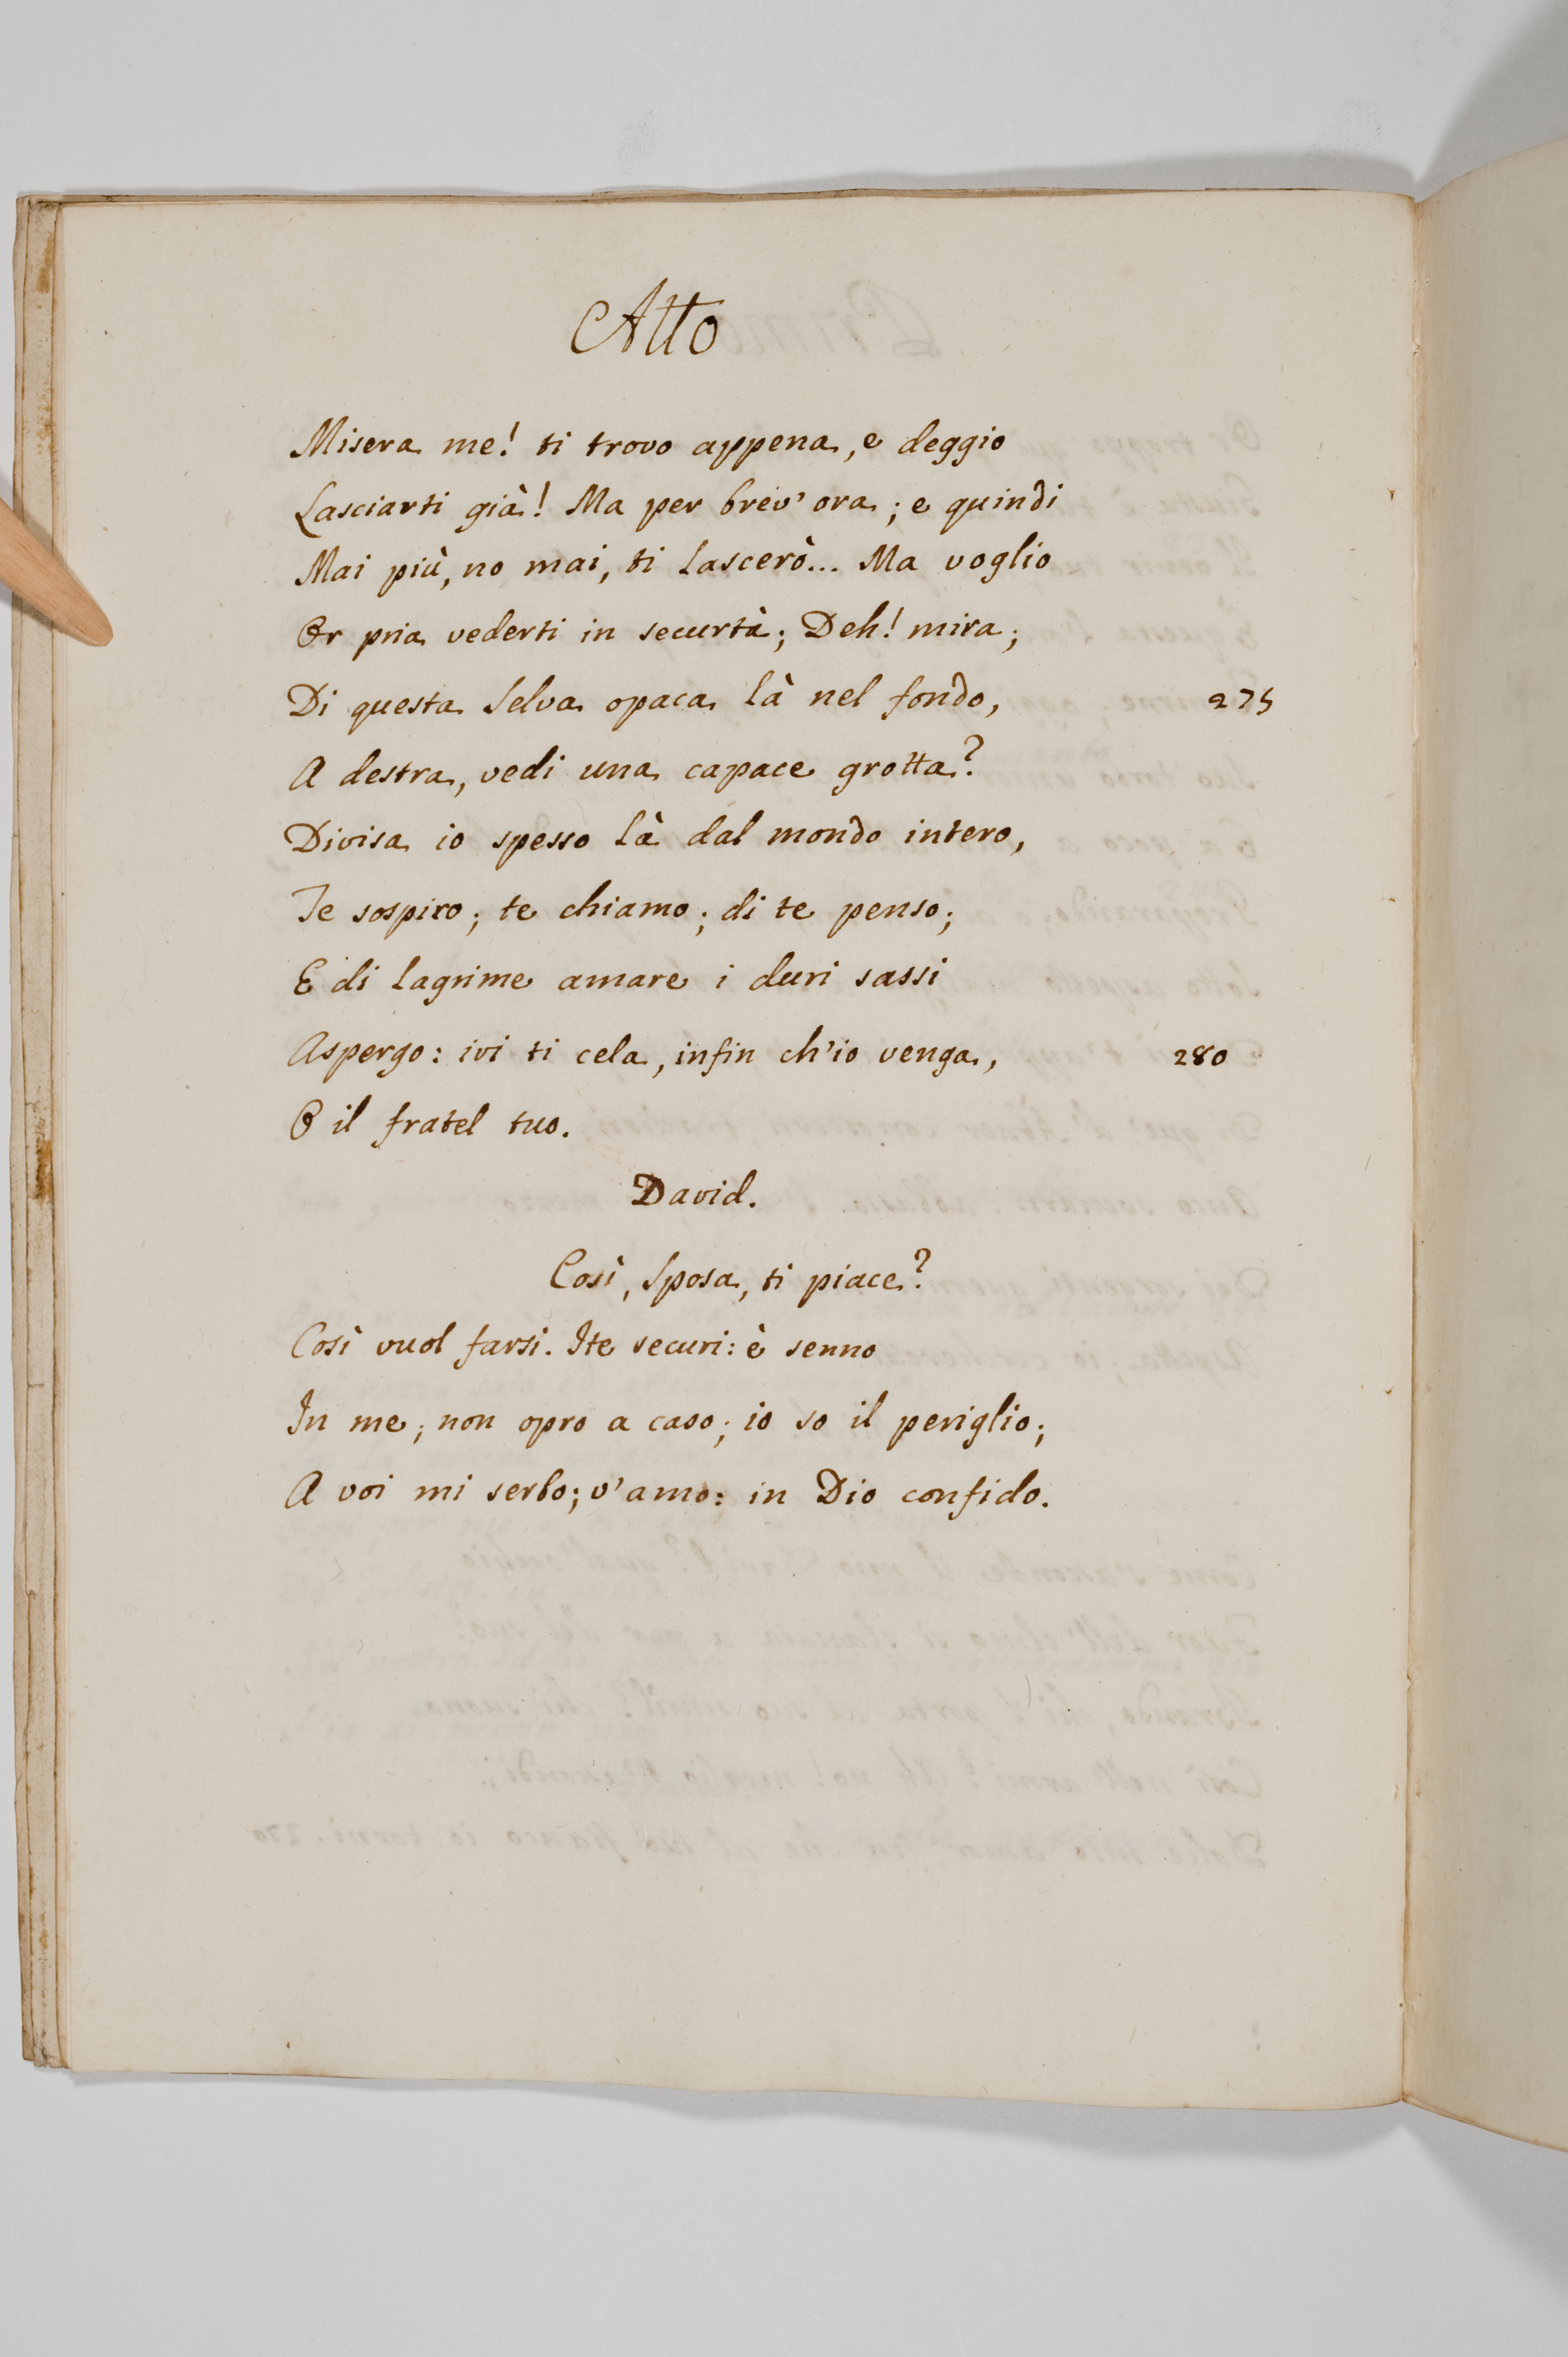 Atto
Misera me! ti trovo appena, e deggio
Lasciarti già! Ma per brev' ora; e quindi
Mai più, no mai, ti lascerò... Ma voglio
Or pria vederti in securtà; Deh! mira;
Di questa Selva opaca là nel fondo, 275
A destra, vedi una capace grotta?
Divisa io spesso là dal mondo intero,
Te sospiro; te chiamo; di te penso;
E di lagrime amare i duri sassi
Aspergo: ivi ti cela, infin ch'io venga, 280
O il fratel tuo.
David.
Così, Sposa, ti piace?
Così vuol farsi. Ite securi: è senno
In me; non opro a caso; io so il periglio;
A voi mi serbo; v'amo: in Dio confido.